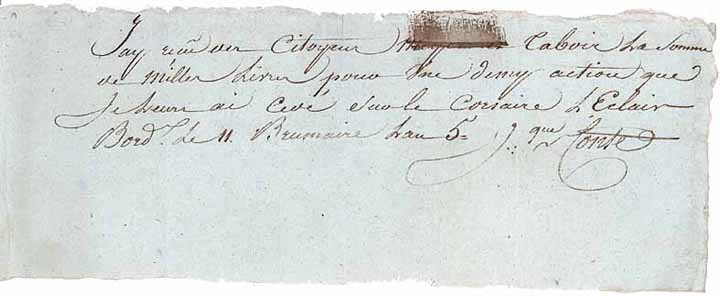 J'ay recu des Citoyens et Taboir La Somme
de miller Livres pour une demy action que
Je Leurs ai Cedé Sur le Corsaire L'Eclair
Bordx Le 11 Brumaire L'an 5= Jques Conte